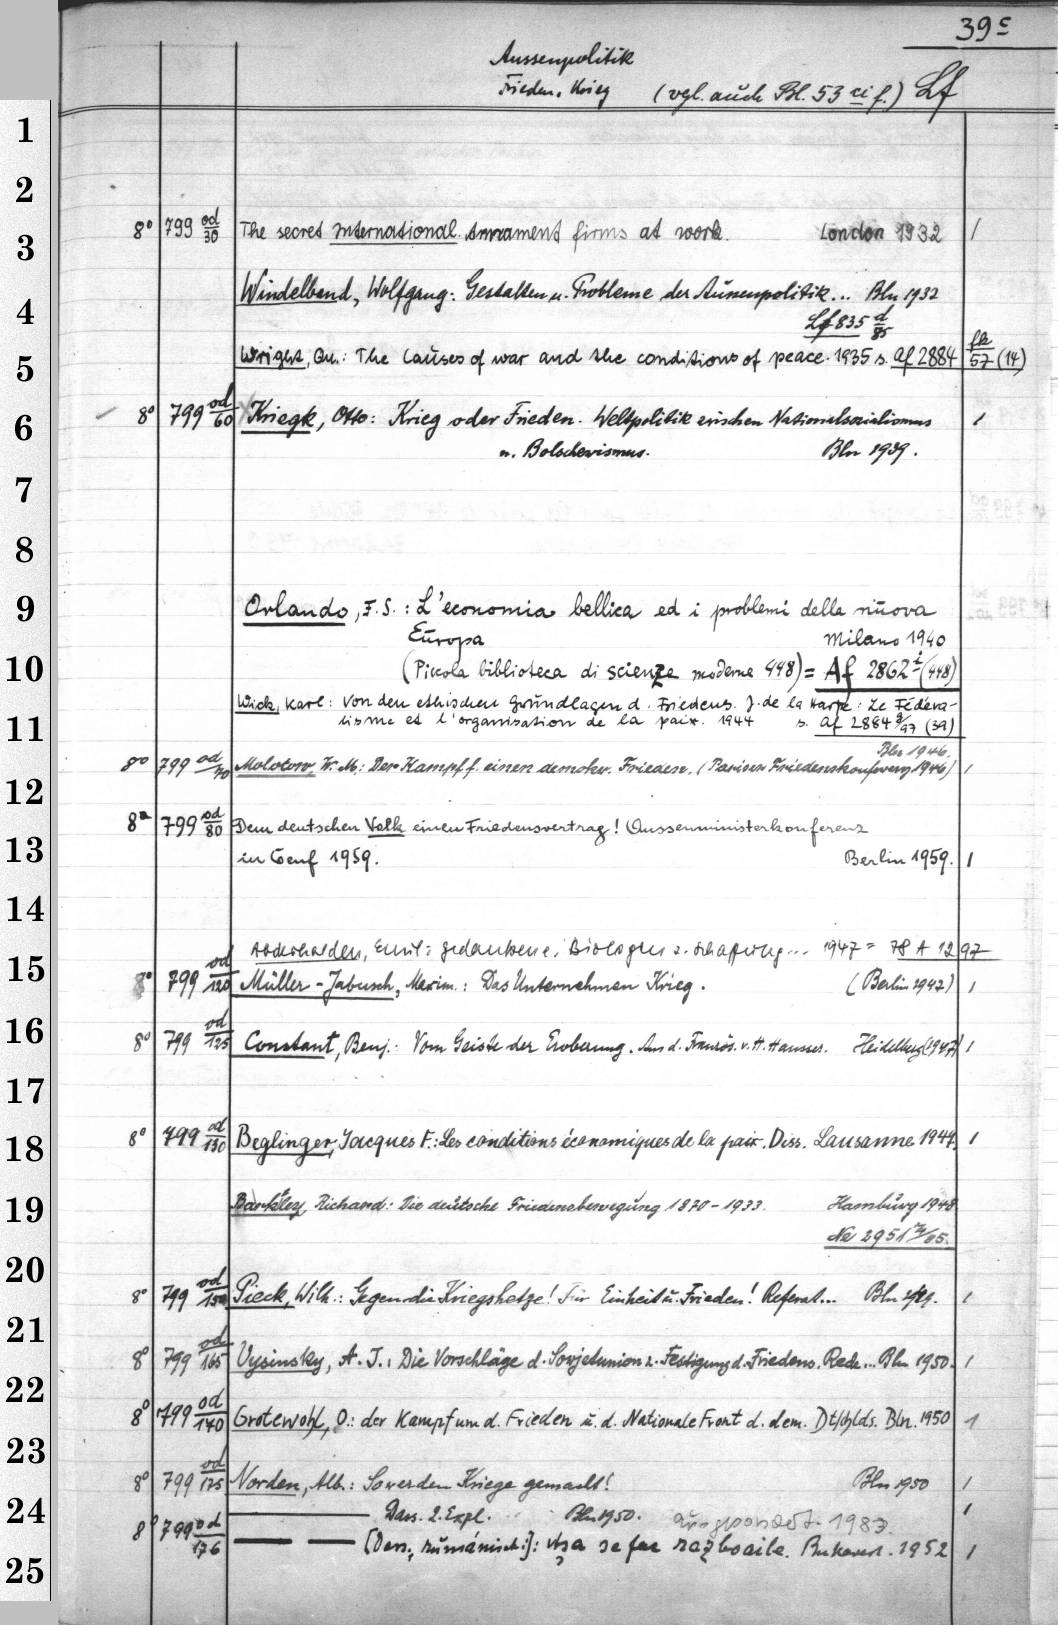 39 c
Aussenpolitik
Frieden. Krieg (vgl. auch Bl. 53 f.) Lf
1
2
8° 799 od/30 The secret international. armament firms at work. London 1932 1
3
Windelband, Wolfgang: Gestalten u. Probleme der Aussenpolitik... Bln 1932
4
Lf 835 d/85
5 Wright, Qu.: The causes of war and the conditions of peace. 1935 s. Af 2884 fk/57 (14)
6 8° 799 od/60 Kriegk, Otto: Krieg oder Frieden. Weltpolitik zwischen Nationalsozialismus 1
u. Bolschewismus. Bln 1939.
7
8
9 Orlando, F. S.: L'economia bellica ed i problemi della nuova
Europa Milano 1940
10 (Piccola biblioteca di scienze moderne 448) = Af 2862 i (448)
Wick, Karl: Von den ethischen Grundlagen d. Friedens. J. de la Harpe: Le Fédéra-
11 lisme et l'organisation de la paix. 1944 s. Af 2884 /97 (39)
Bln 1946.
8° 799 od/70 Molotow, W. M.: Der Kampf f. einen demokr. Frieden. (Pariser Friedenskonferenz 1946) 1
12
8° 799 od/80 Dem deutschen Volk einen Friedensvertrag! Aussenministerkonferenz
13 in Genf 1959. Berlin 1959. 1
14
Abderhalden, Emil: Gedanken e. Biologen z. Schaffung... 1947 = 78 A 1297
15 8° 799 od/120 Müller-Jabusch, Maxim.: Das Unternehmen Krieg. (Berlin 1947) 1
16 8° 799 od/125 Constant, Benj.: Vom Geiste der Eroberung. Aus d. Französ. v. H. Hausser. Heidelberg (1947) 1
17
18 8° 799 od/130 Beglinger, Jacques F.: Les conditions économiques de la paix. Diss. Lausanne 1947. 1
19 Barkeley, Richard: Die deutsche Friedensbewegung 1870-1933. Hamburg 1948
Ne 2951 /85.
20
8° 799 od/150 Pieck, Wilh.: Gegen die Kriegshetze! Für Einheit u. Frieden! Referat... Bln 1
21
8° 799 od/165 Vysinsky, A. J.: Die Vorschläge d. Sowjetunion z. Festigung d. Friedens. Rede... Bln 1950. 1
22
8° 799 od/170 Grotewohl, O.: der Kampf um d. Frieden u. d. Nationale Front d. dem. Dtschlds. Bln. 1950 1
23
8° 799 od/175 Norden, Alb.: So werden Kriege gemacht! Bln 1950 1
24 ——— Dass. 2. Expl. Bln 1950. ausgesondert. 1987. 1
8° 799 od/176 — — [Dass., rumänisch:]: Aşa se fac războaile. Bukarest. 1952 1
25